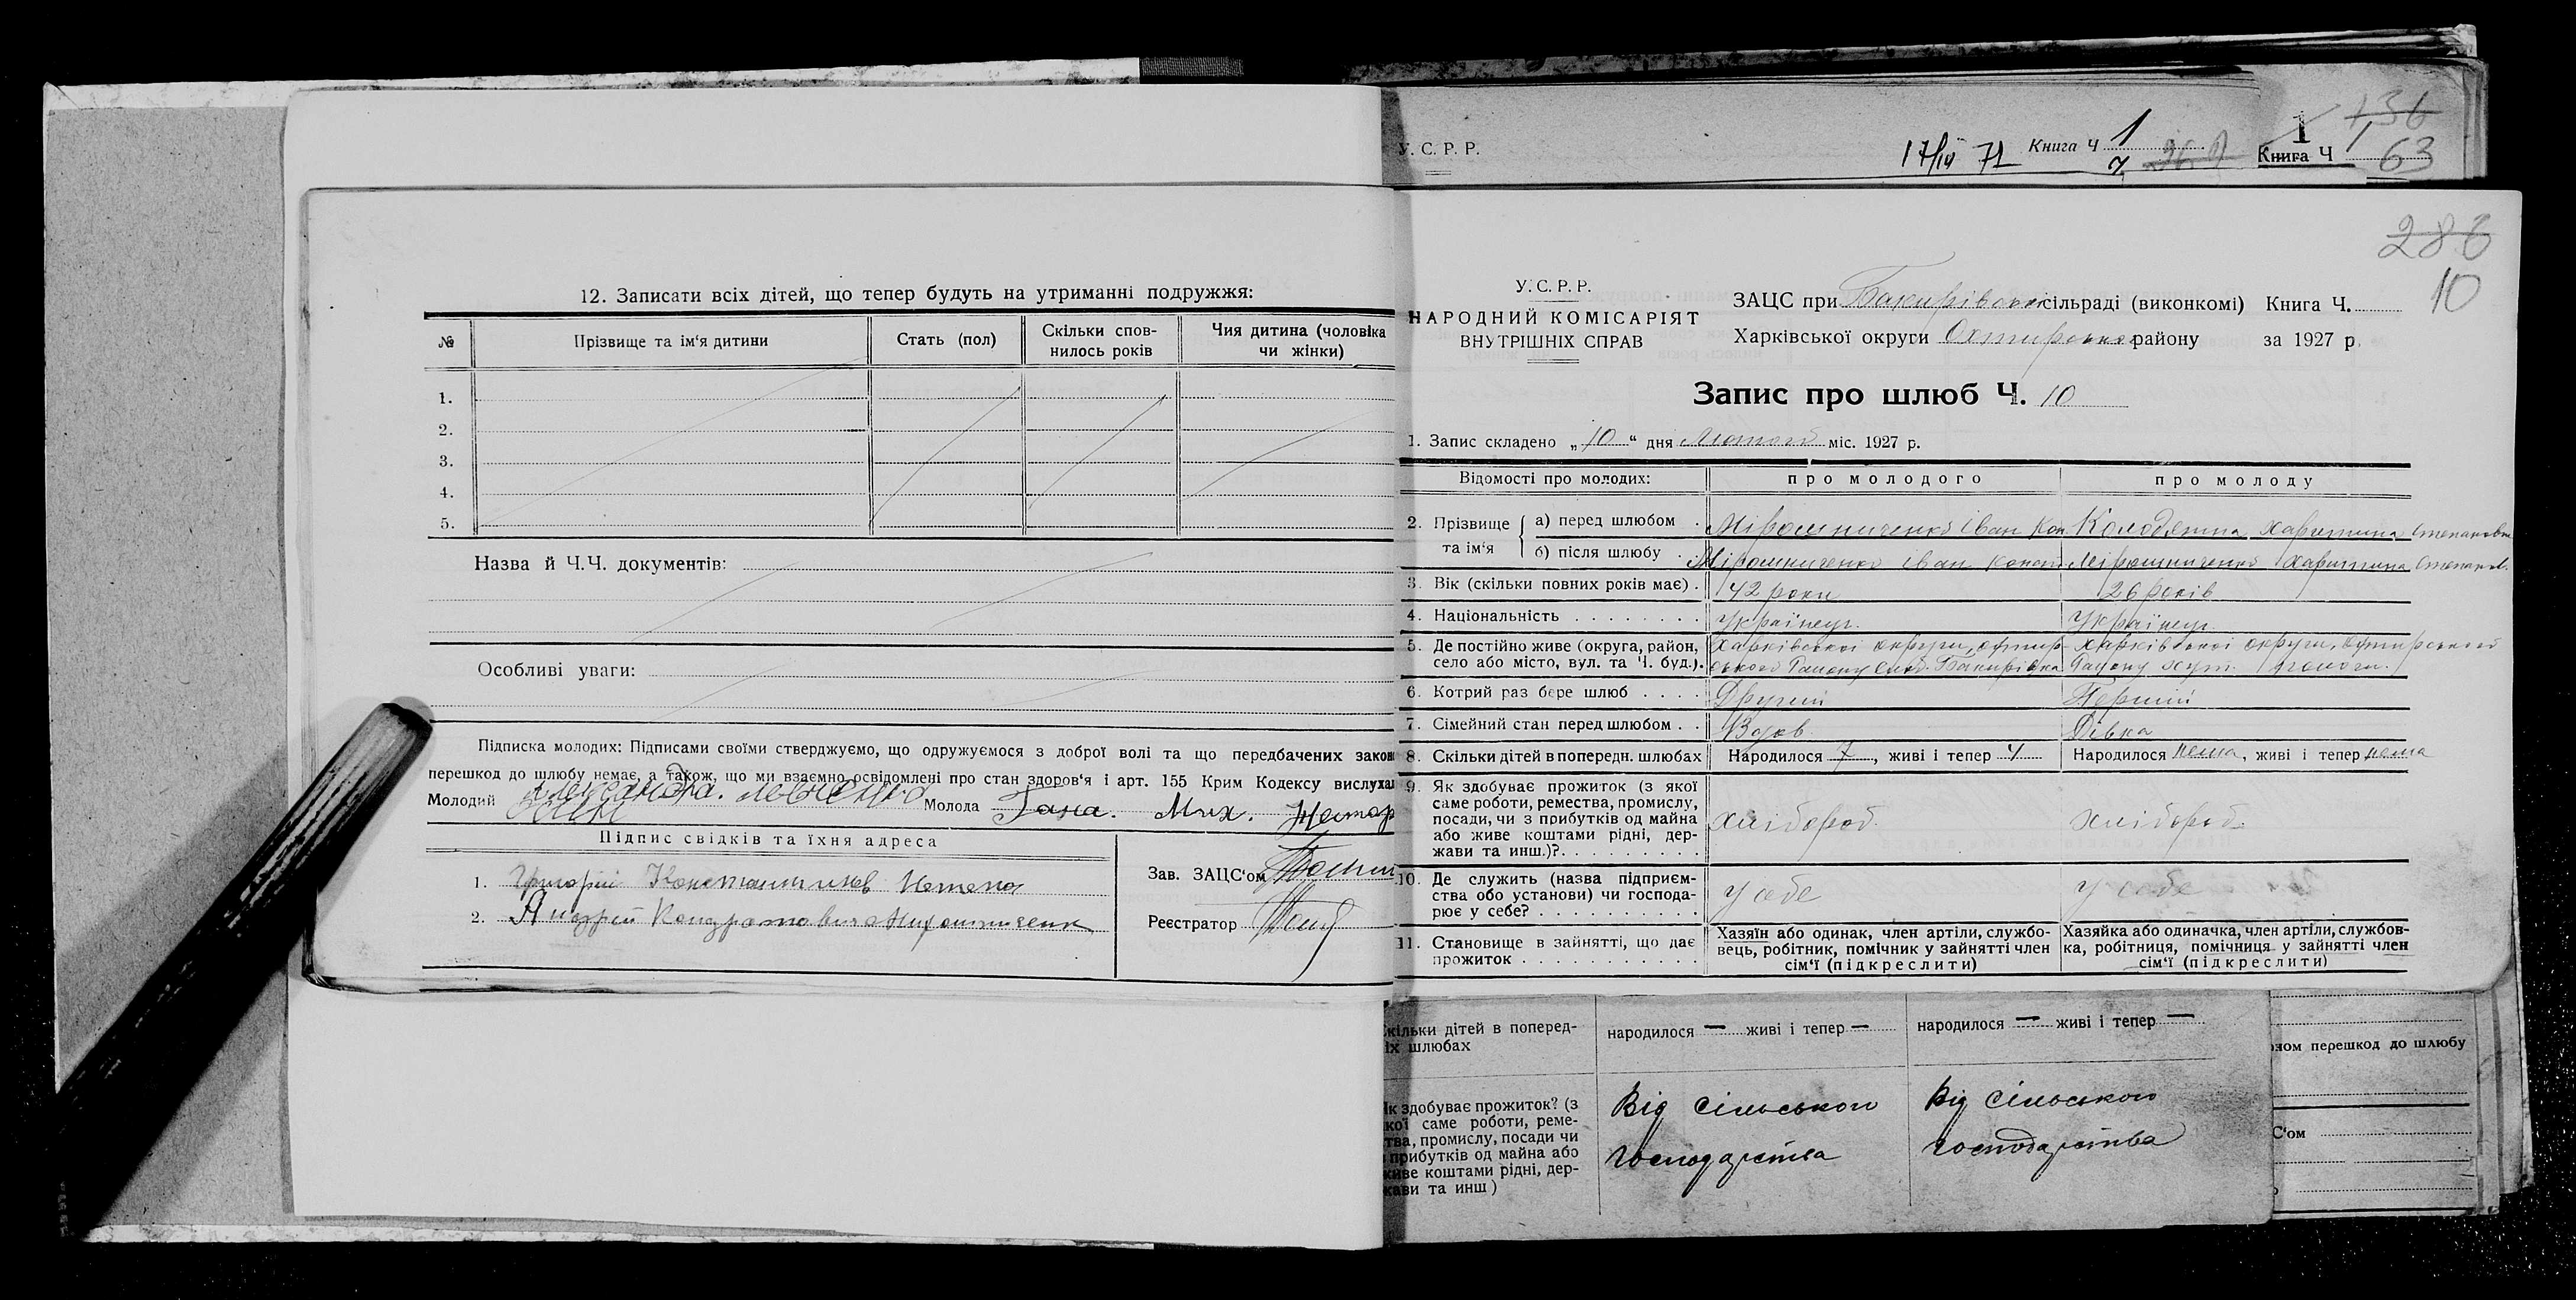 12. Записати всіх дітей, що тепер будуть на утриманні подружжя:
№ Прізвище та ім'я дитини Стать (пол) Скільки спов-нилось років Чия дитина (чоловіка чи жінки)
1.
2.
3.
4.
5.
Назва й Ч.Ч. документів:
Особливі уваги:
Підписка молодих: Підписами своїми стверджуємо, що одружуємося з доброї волі та що передбачених закон
перешкод до шлюбу немає, а також, що ми взаємно освідомлені про стан здоров'я і арт. 155 Крим Кодексу вислуха
Молодий Молода Гана. Мих.
Підпис свідків та їхня адреса
1. Григорій
2. Андрей Кондратович
Зав. ЗАЦС'ом
Реєстратор
У. С. Р. Р.
17/IV 71 Книга Ч 1
1 136
Книга Ч 1 63
286
10
У.С.Р.Р.
НАРОДНИЙ КОМІСАРІЯТ
ВНУТРІШНІХ СПРАВ
ЗАЦС при Бакирівській сільраді (виконкомі) Книга Ч.
Харківської округи Охтирського району за 1927 р.
Запис про шлюб Ч. 10
1. Запис складено „10" дня Лютого міс. 1927 р.
Відомості про молодих: про молодого про молоду
2. Прізвище та ім'я
а) перед шлюбом . Мірошниченко Іван Кон Колодяжна Харитина Степановна
б) після шлюбу . . Мірошниченко Іван Конон Мірошниченко Харитина Степанов.
3. Вік (скільки повних років має) . 42 роки 26 років
4. Національність . . . . . . . . Українец. Українец.
5. Де постійно живе (округа, район, Харківської округи, Охтир- Харківської округи, Охтирського
село або місто, вул. та Ч. буд.). ського Району Слоб. Бакирівка Району хут.
6. Котрий раз бере шлюб . . . . Другий Перший
7. Сімейний стан перед шлюбом . . Вдов. Дівка
8. Скільки дітей в попередн. шлюбах Народилося 7, живі і тепер 4 Народилося нема, живі і тепер нема
9. Як здобуває прожиток (з якої
саме роботи, ремества, промислу,
посади, чи з прибутків од майна
або живе коштами рідні, дер-
жави та инш.)?. . . . . . . . . хлібороб. хлібороб.
10. Де служить (назва підприєм-
ства або установи) чи господа-
рює у себе? . . . . . . . . . . у себе у себе
11. Становище в зайнятті, що дає
прожиток . . . . . . . . . . .
Хазяїн або одинак, член артіли, службо-
вець, робітник, помічник у зайнятті член
сім'ї (підкреслити)
Хазяйка або одиначка, член артіли, службов-
ка, робітниця, помічниця у зайнятті член
сім'ї (підкреслити)
кільки дітей в поперед-
іх шлюбах
народилося — живі і тепер — народилося — живі і тепер —
ном перешкод до шлюбу
к здобуває прожиток? (з
кої саме роботи, реме-
тва, промислу, посади чи
прибутків од майна або
живе коштами рідні, дер-
жави та инш)
Від сільського
господарства
Від сільського
господарства
С'ом